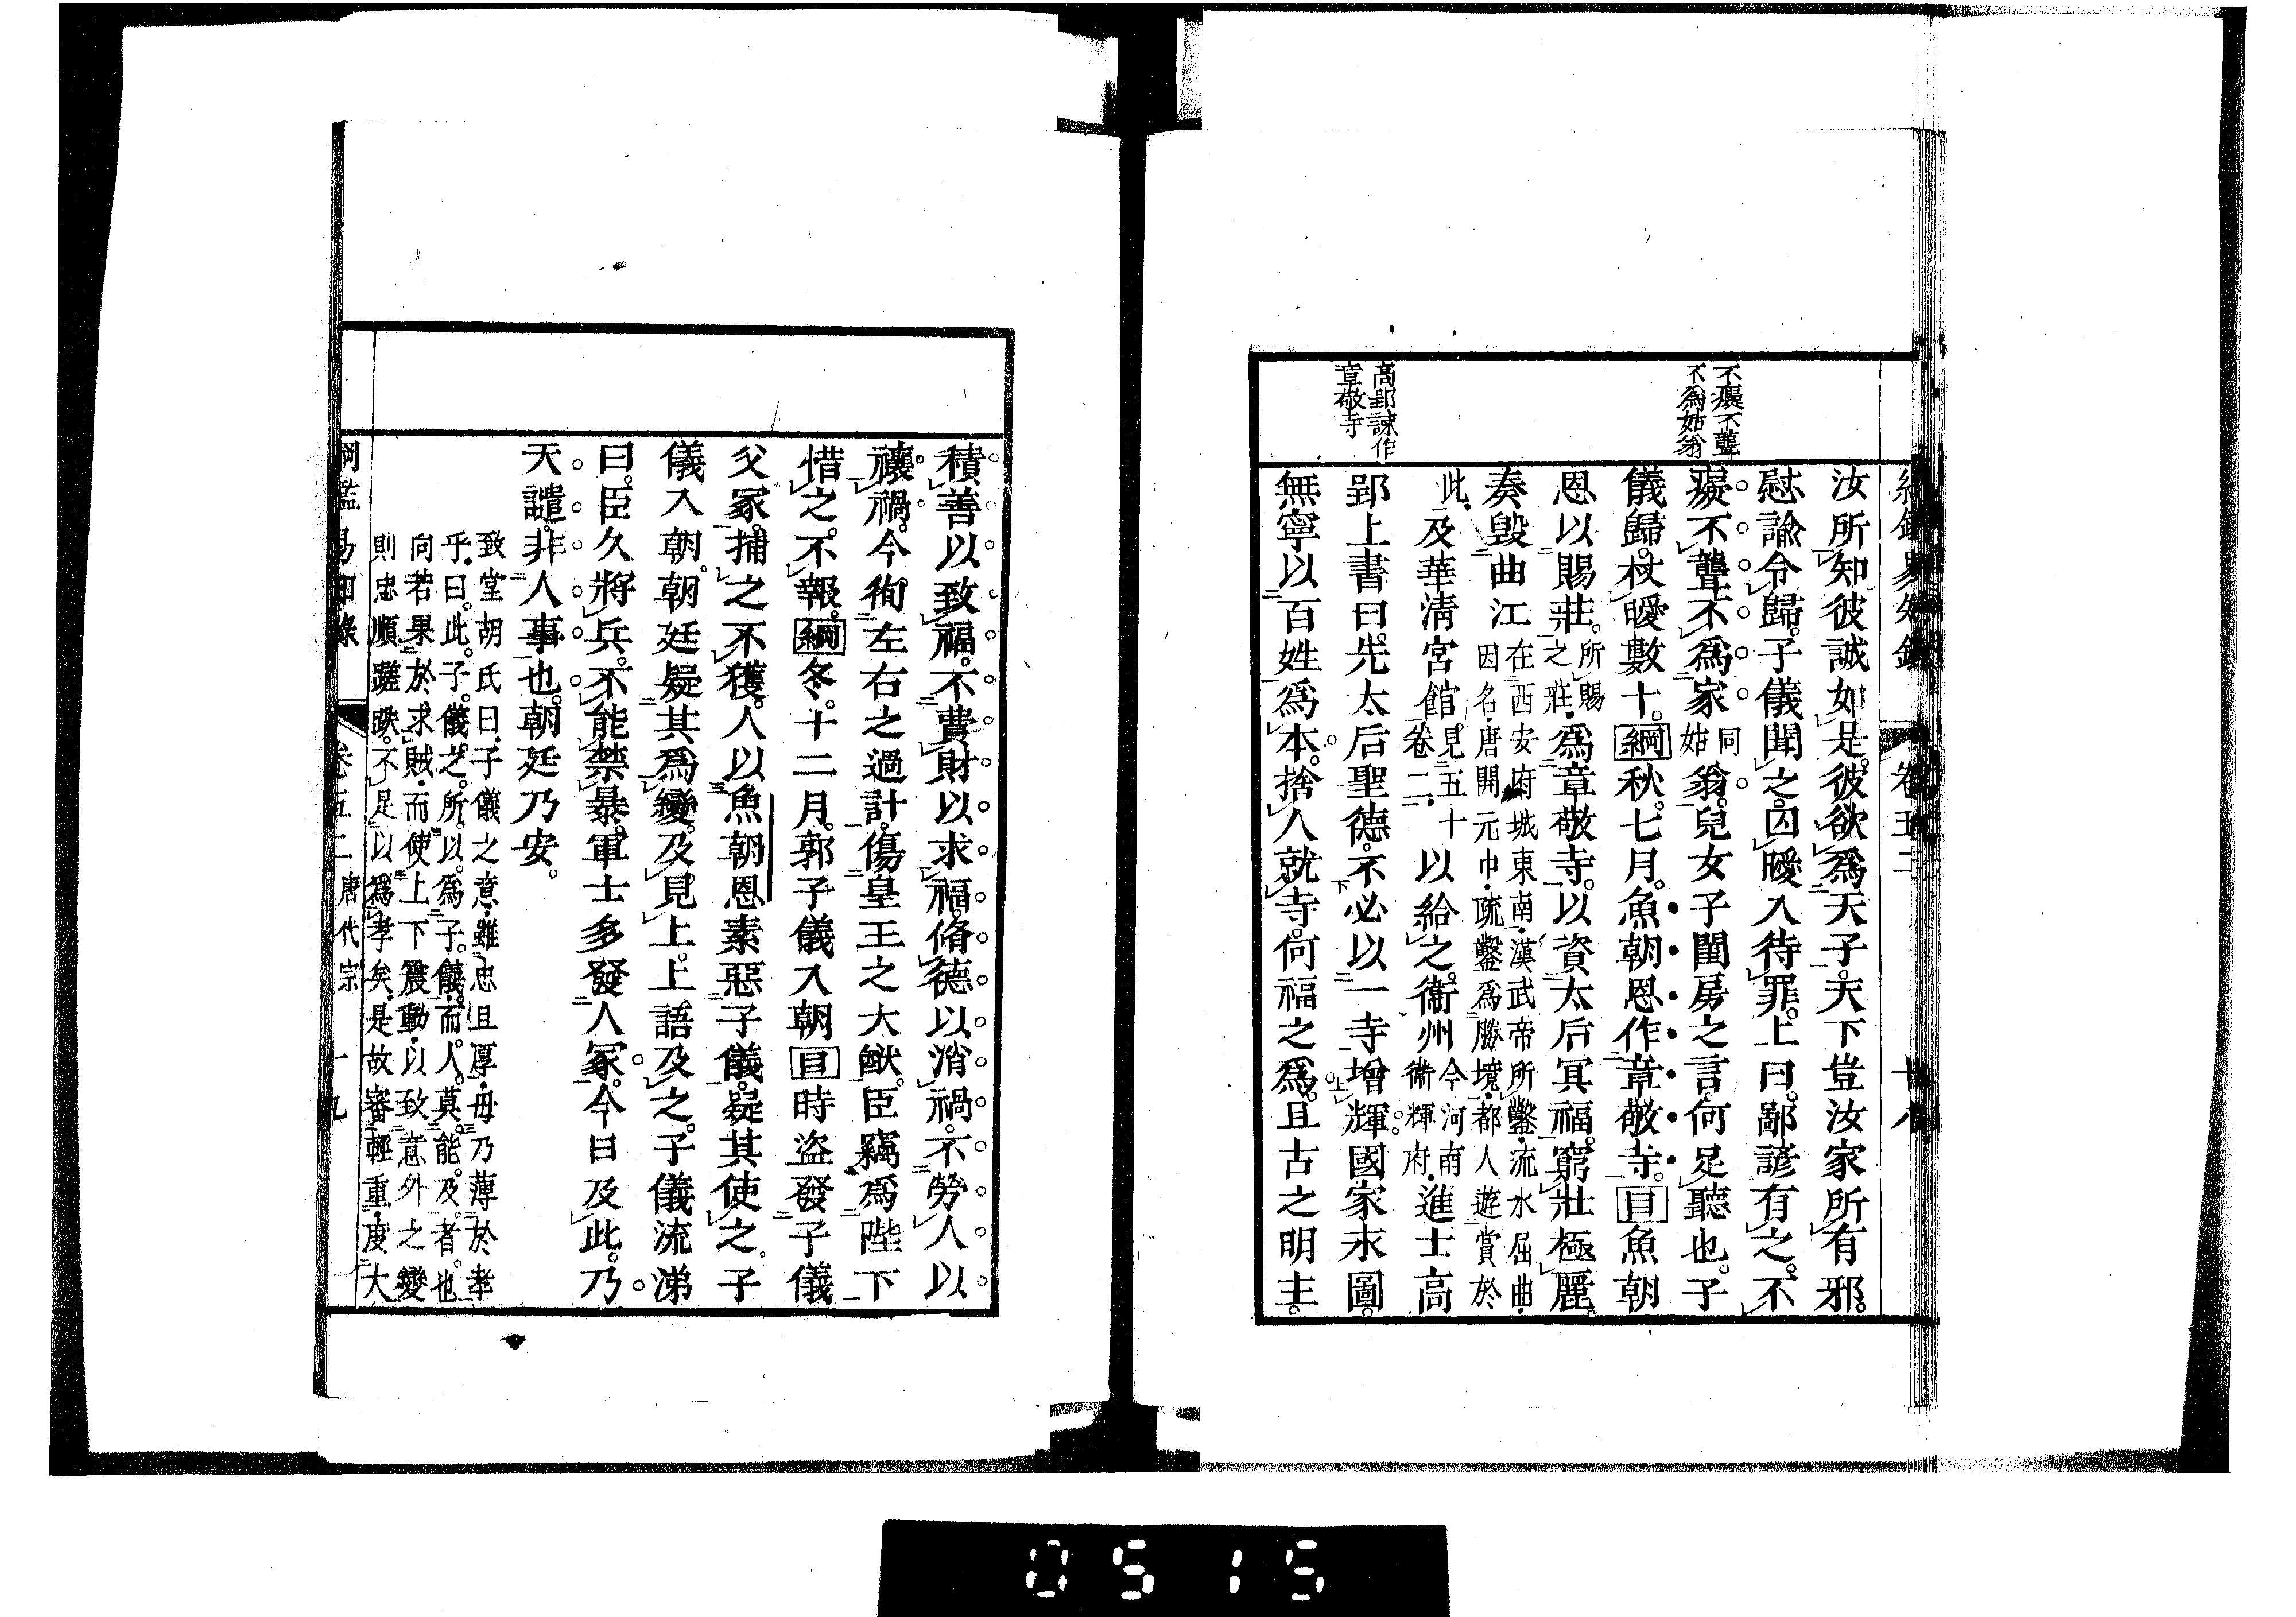 綱鑑易知錄 卷五二 十八
不癡不聾
不爲姑翁
高郢諫作
章敬寺
汝所知。彼誠如是。彼欲爲天子。天下豈汝家所有邪。
慰諭令歸。子儀聞之。囚曖入待罪。上曰。鄙諺有之。不
癡不聾。不爲家同姑翁。兒女子閨房之言。何足聽也。子
儀歸。杖曖數十。綱秋。七月。魚朝恩作章敬寺。目魚朝
恩以賜莊。所賜之莊。爲章敬寺。以資太后冥福。窮壯極麗。
奏毀曲江在西安府城東南。漢武帝所鑿。流水屈曲。因名。唐開元中。疏鑿爲勝境。都人遊賞於
此。及華淸宮館。見五十卷二。以給之。衞州今河南衞輝府。進士高
郢上書曰。先太后聖德。不必以一寺增輝。國家永圖。
無寧以百姓爲本。捨人就寺。何福之爲。且古之明主。
積善以致福。不費財以求福。脩德以消禍。不勞人以
禳禍。今徇左右之過計。傷皇王之大猷。臣竊爲陛下
惜之。不報。綱冬。十二月。郭子儀入朝目時盜發子儀
父冢。捕之不獲。人以魚朝恩素惡子儀。疑其使之。子
儀入朝。朝廷疑其爲變。及見上。上語及之。子儀流涕
曰。臣久將兵。不能禁暴。軍士多發人冢。今日及此。乃
天譴。非人事也。朝廷乃安。
致堂胡氏曰。子儀之意。雖忠且厚。毋乃薄於孝
乎。曰。此。子儀之所以爲子儀。而人莫能及者也。
向若果於求賊。而使上下震動。以致意外之變。
則忠順蹉跌。不足以爲孝矣。是故審輕重。度大
綱鑑易知錄 卷五二 唐代宗 十九
0515